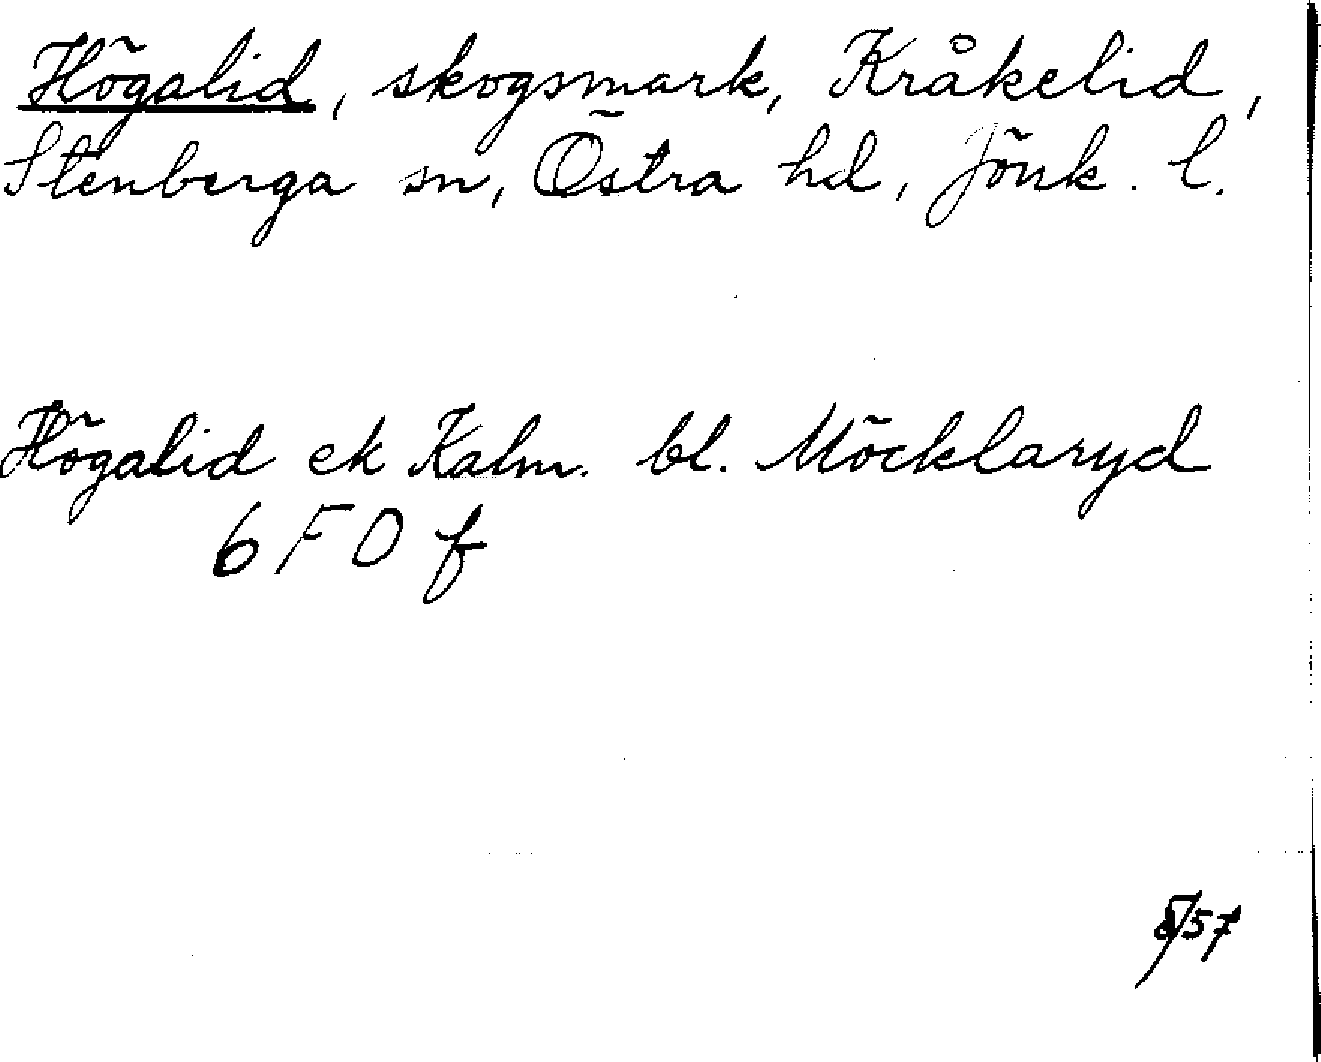 Högalid, skogsmark, Kråkelid,
Stenberga sn, Östra hd, Jönk. l.
Högalid ek Kalm. bl. Möcklaryd
6 F 0 f